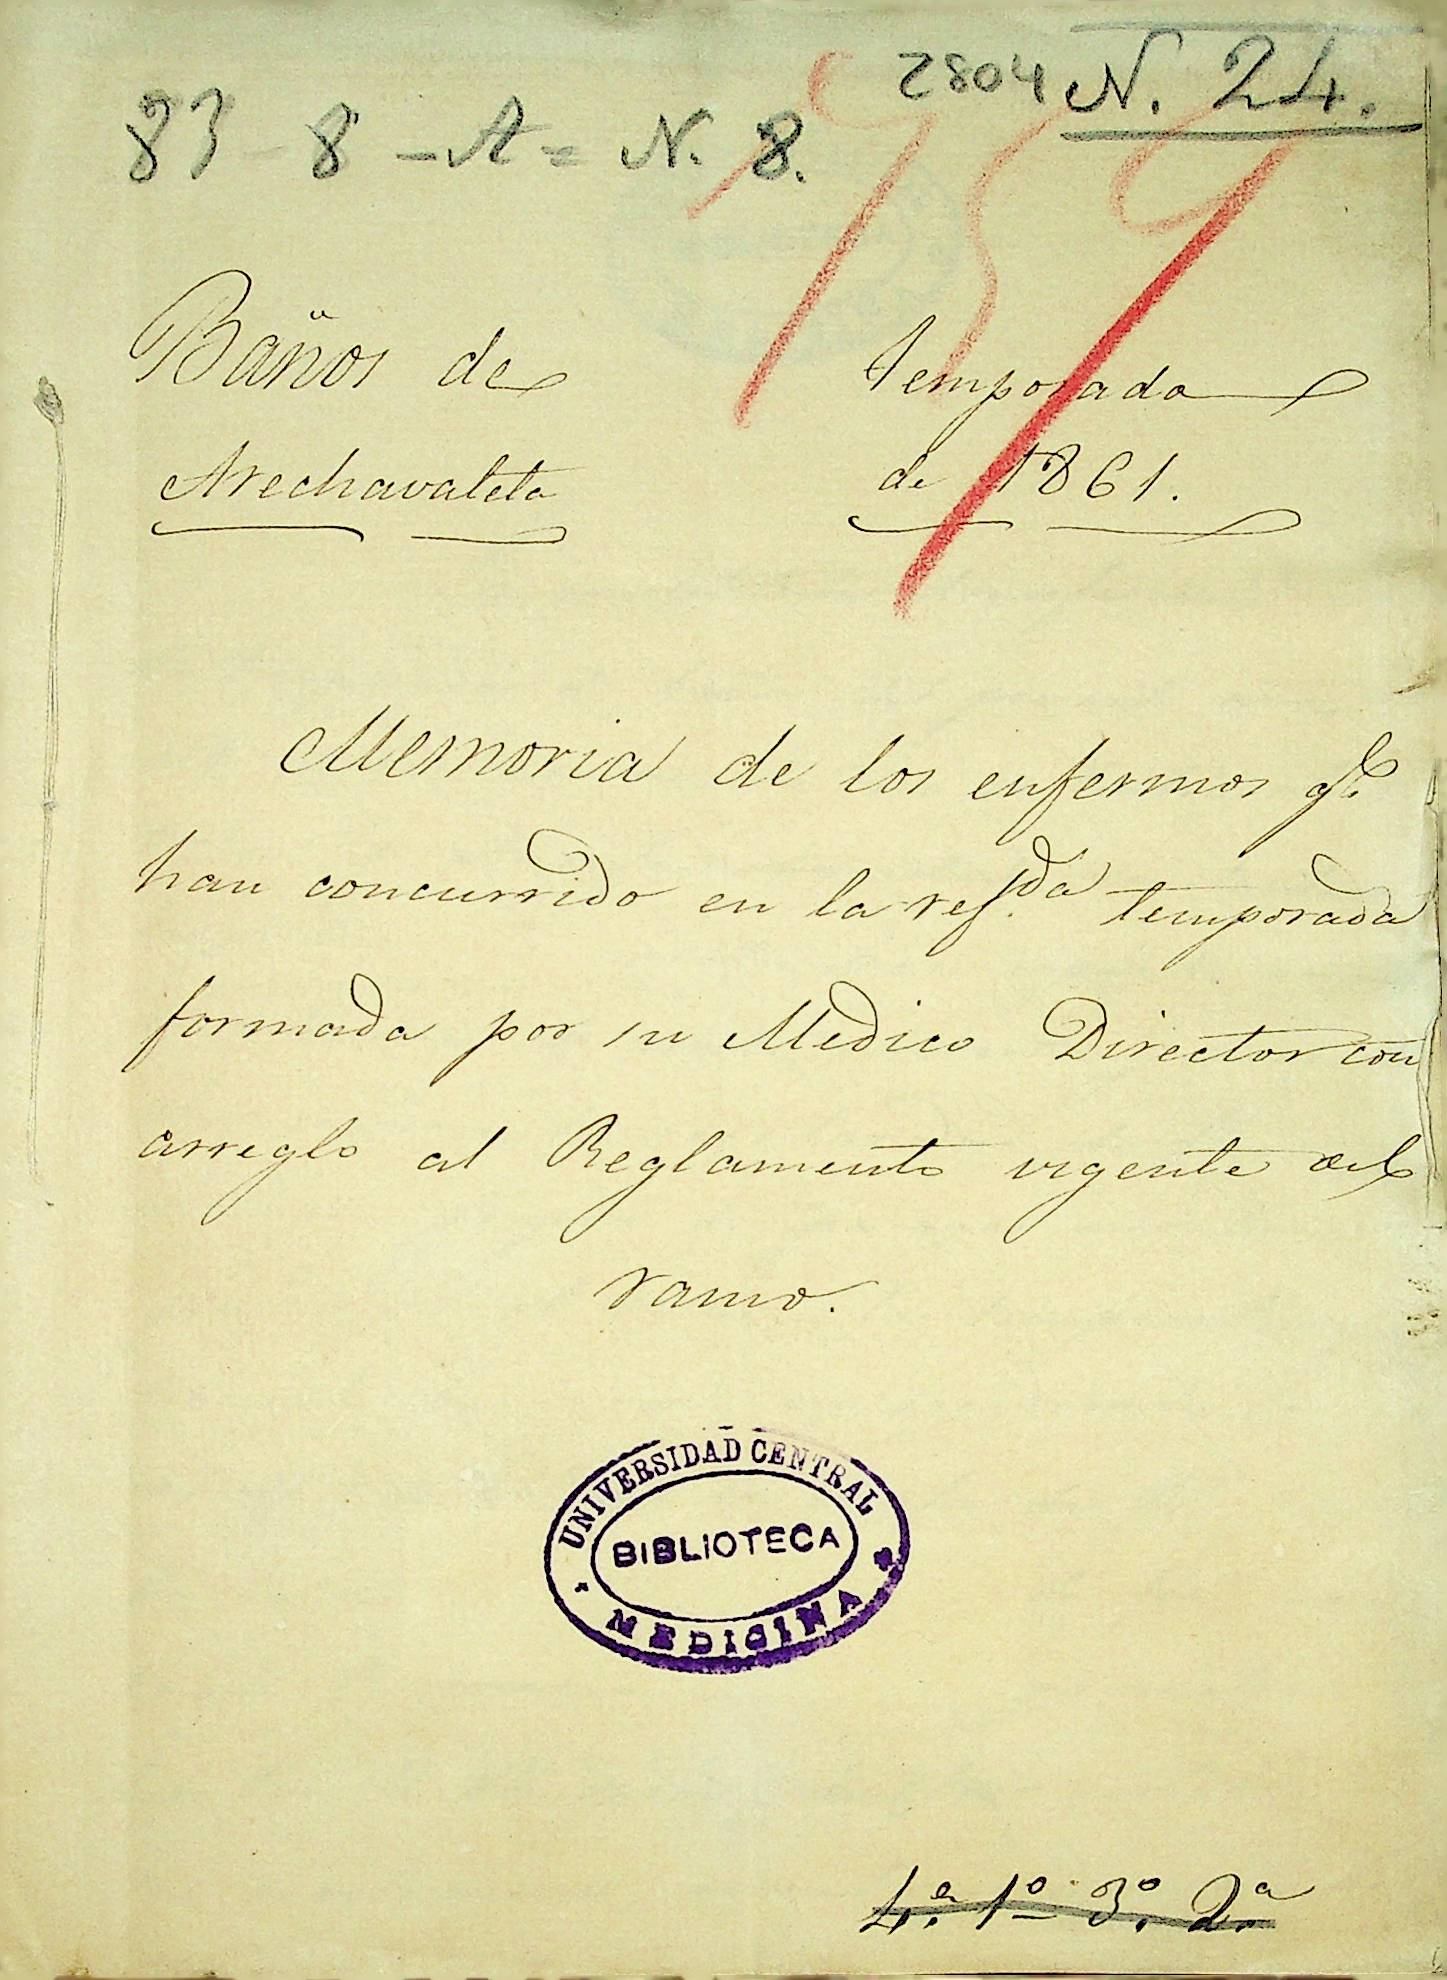 2804 N. 24.
83 - 8 - A = N. 8.
959
Baños de
Arechavaleta
Temporada
de 1861.
Memoria de los enfermos qe.
han concurrido en la refda. temporada
formada por su Medico Director con
arreglo al Reglamento vigente del
ramo.
UNIVERSIDAD CENTRAL
BIBLIOTECA
MEDICINA
4.a 1.o 3.o 2.a